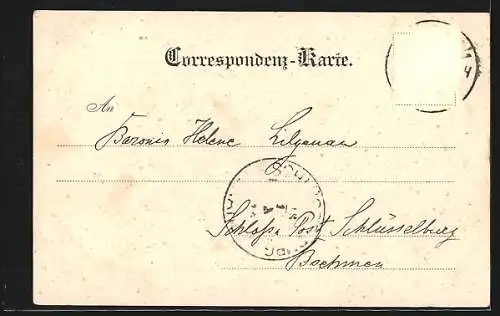 Correspondenz-Karte.
An
Baronin Helene Lilgenau
Schloss Post Schlüsselburg
Boehmen